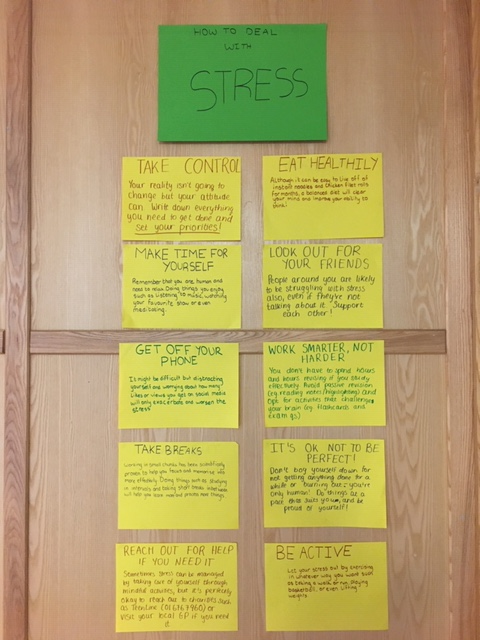 HOW TO DEAL
WITH
STRESS
TAKE CONTROL
Your reality isn't going to
change but your attitude
can. Write down everything
you need to get done and
set your priorities!
EAT HEALTHILY
Although it can be easy to live off of
instant noodles and chicken fillet rolls
for months, a balanced diet will clear
your mind and improve your ability to
MAKE TIME FOR
YOURSELF
Remember that you are human and
need to relax. Doing things you enjoy
such as listening to music, watching
your favourite show or even
meditating.
LOOK OUT FOR
YOUR FRIENDS
People around you are likely
to be struggling with stress
also, even if they're not
talking about it. Support
each other!
GET OFF YOUR
PHONE
It might be difficult but distracting
yourself and worrying about how many
likes or views you get on social media
will only exacerbate and worsen the
stress
WORK SMARTER, NOT
HARDER
You don't have to spend hours
and hours revising if you study
effectively. Avoid passive revision
(eg reading notes/highlighting) and
opt for activities that challenge
your brain (eg flashcards and
exam qs)
TAKE BREAKS
Working in small chunks has been scientifically
proven to help you focus and
more effectively. Doing things such as studying
in intervals and taking short breaks in between
will help you learn more and
IT'S OK NOT TO BE
PERFECT!
Don't put yourself down for
not getting anything done for a
while or burning out: you're
only human! Do things at a
pace that suits you, and
be proud of yourself!
REACH OUT FOR HELP
IF YOU NEED IT
Sometimes stress can be managed
by taking care of yourself through
mindful activities, but it's perfectly
okay to reach out to charities such
as Teenline or
visit your local GP if you need
it
BE ACTIVE
Let your stress out by exercising
in whatever way you want such
as taking a walk, playing
basketball, or even lifting
weights